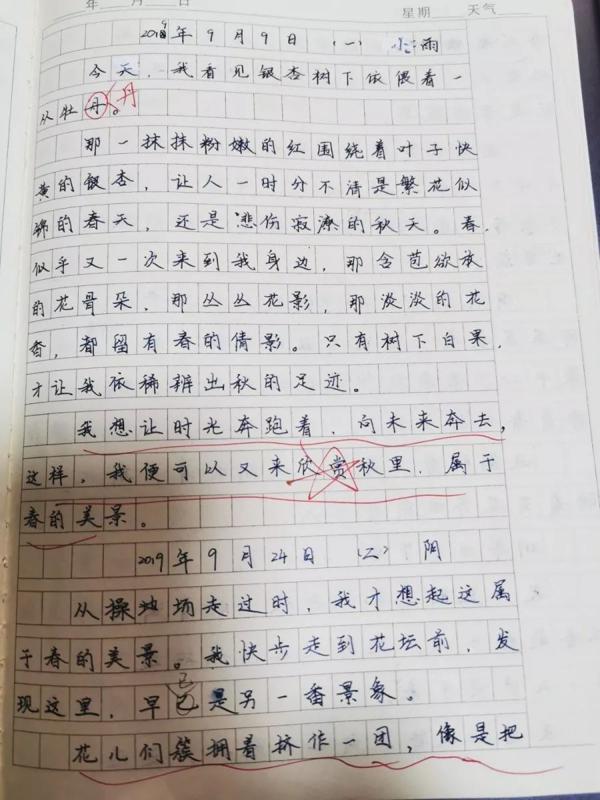 年 月 日 星期 天气
2019年9月9日 (一) 小雨
今天，我看见银杏树下依偎着一
丛牡丹。丹
那一抹抹粉嫩的红围绕着叶子快
黄的银杏，让人一时分不清是繁花似
锦的春天，还是悲伤寂潦的秋天。春，
似乎又一次来到我身边，那含苞欲放
的花骨朵，那丛丛花影，那淡淡的花
香，都留有春的倩影。只有树下白果，
才让我依稀辨出秋的足迹。
我想让时光奔跑着，向未来奔去，
这样，我便可以又来欣赏秋里，属于
春的美景。
2019年9月24日 (二) 阴
从操场走过时，我才想起这属
于春的美景。我快步走到花坛前，发
现这里，早已是另一番景象。
花儿们簇拥着挤作一团，像是把